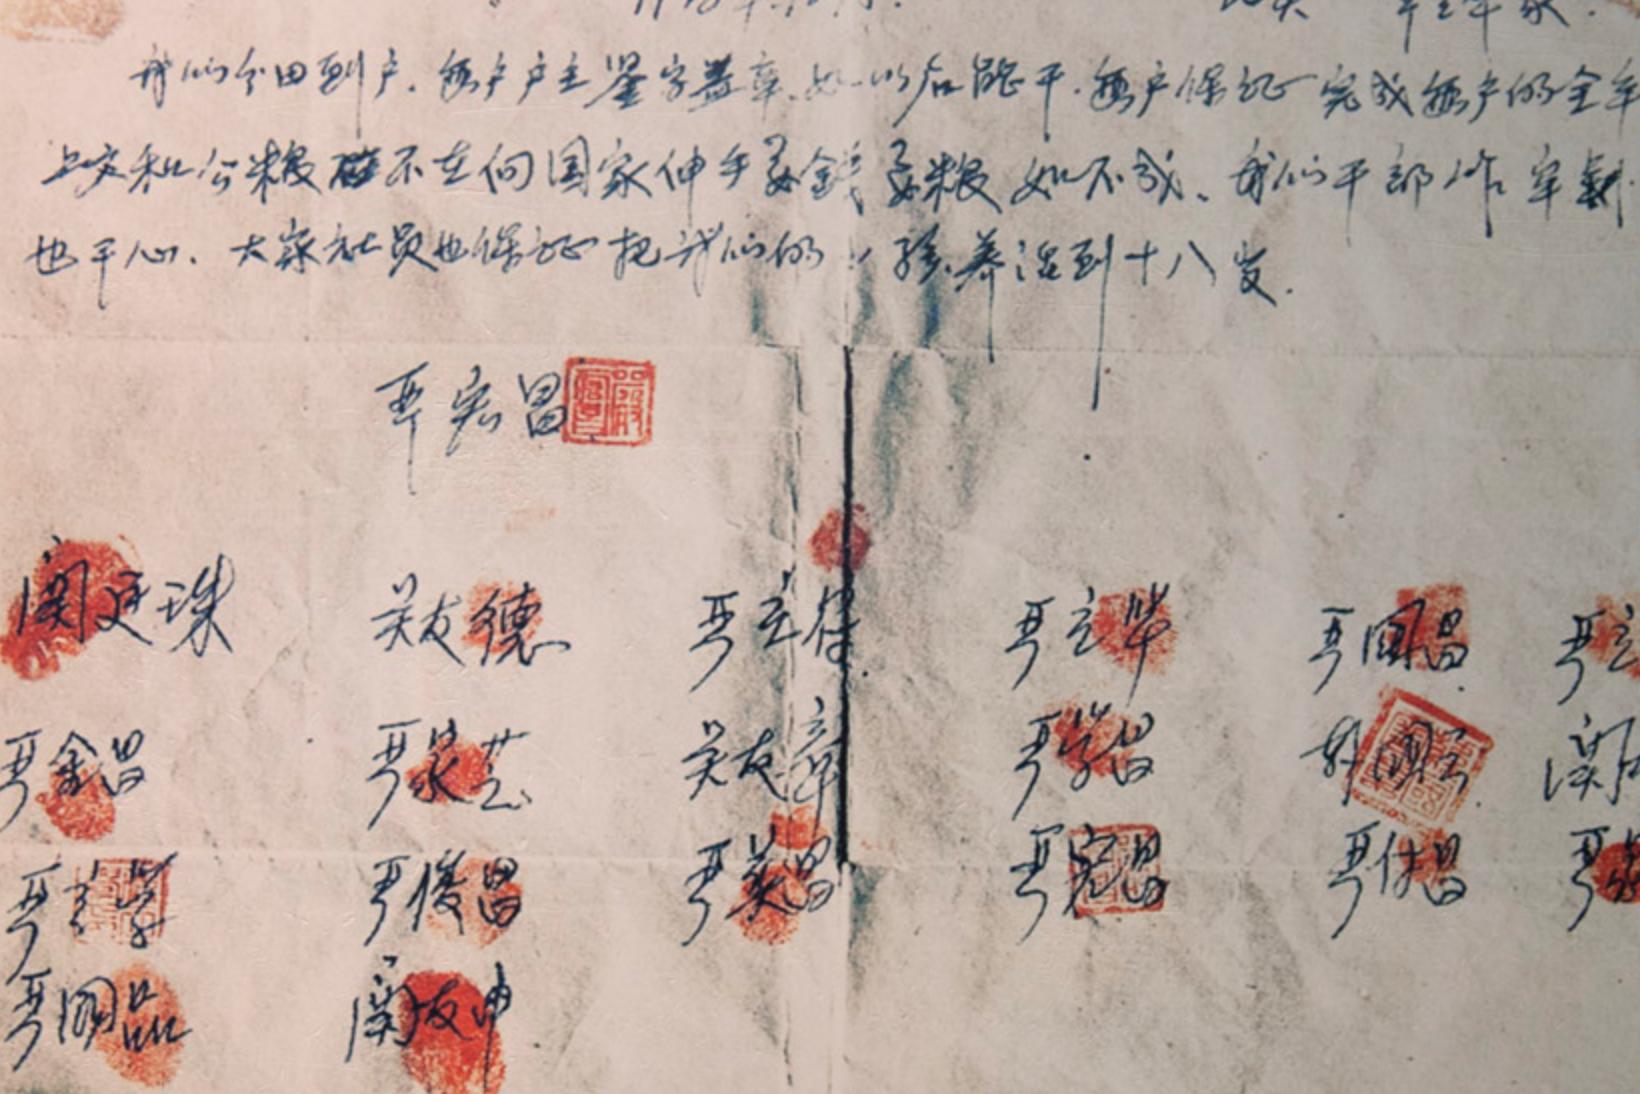 我们分田到户，每户户主签字盖章，如以后能干，每户保证完成每户的全年
上交和公粮不在向国家伸手要钱要粮如不成，我们干部作牢刹
也干心，大家社员也保证把我们的小孩养活到十八岁.
严宏昌
关廷珠 关友德 严立符 严立华 严国昌 严立
严金昌 严家芝 关友章 严学昌 韩国云 关友
严立学 严俊昌 严美昌 严宏昌 严付昌 严
严国品 关友申